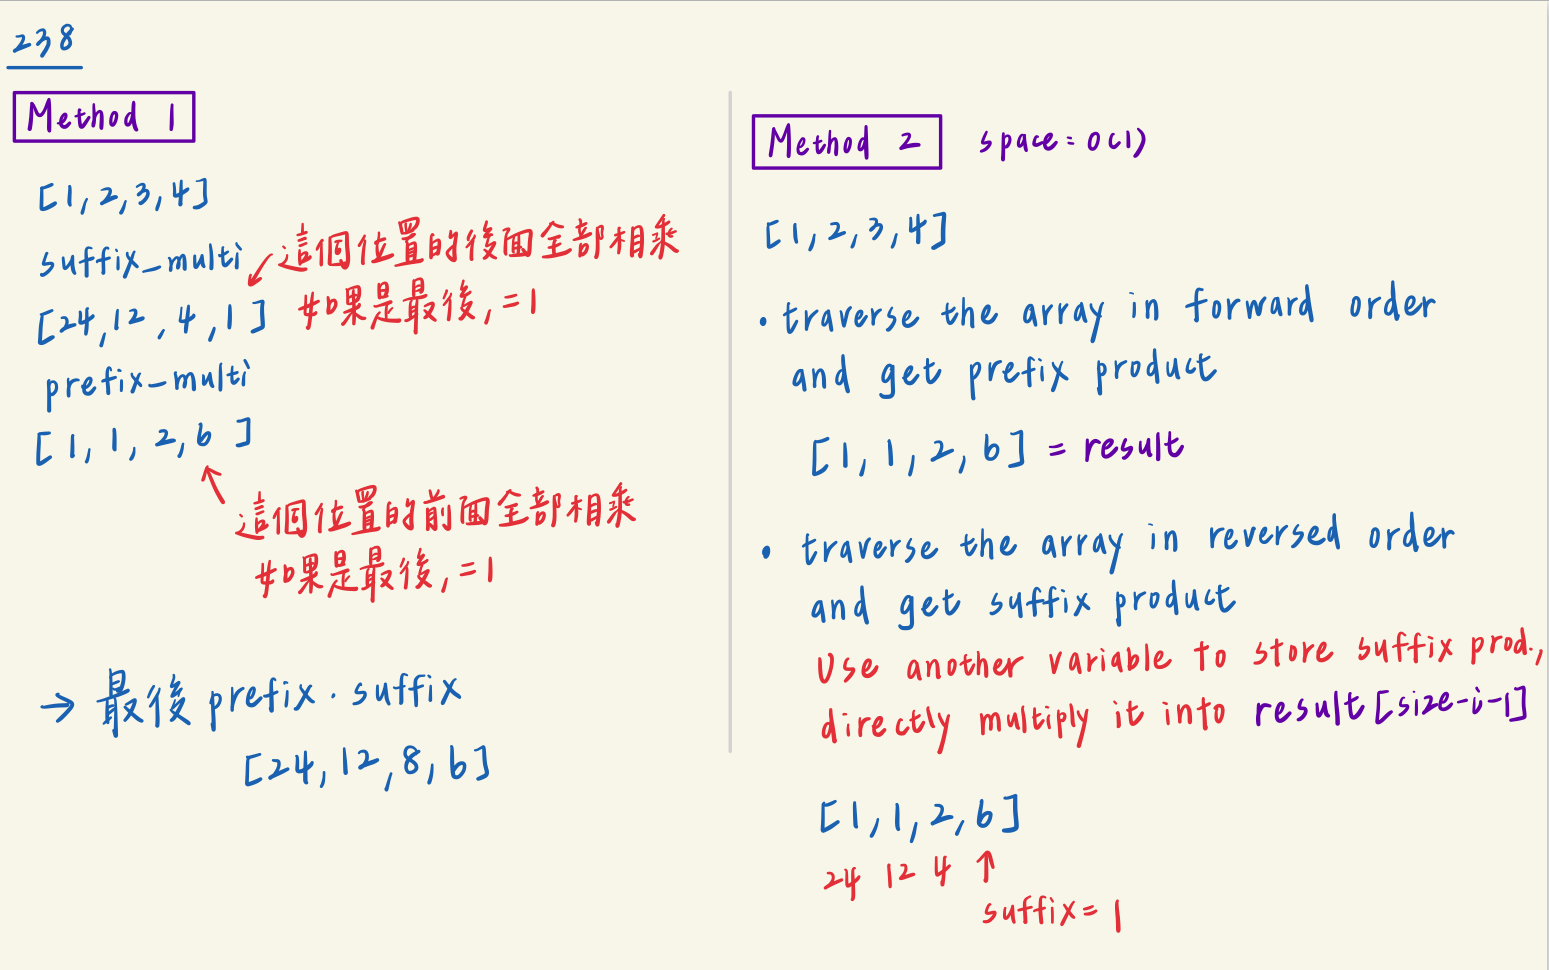 238
Method 1
[1,2,3,4]
suffix_multi
這個位置的後面全部相乘
[24,12,4,1]
如果是最後,=1
prefix_multi
[1,1,2,6]
這個位置的前面全部相乘
如果是最後,=1
→ 最後 prefix · suffix
[24,12,8,6]
Method 2 space=O(1)
[1,2,3,4]
• traverse the array in forward order
and get prefix product
[1,1,2,6] = result
• traverse the array in reversed order
and get suffix product
Use another variable to store suffix prod.,
directly multiply it into result[size-i-1]
[1,1,2,6]
24 12 4
suffix=1